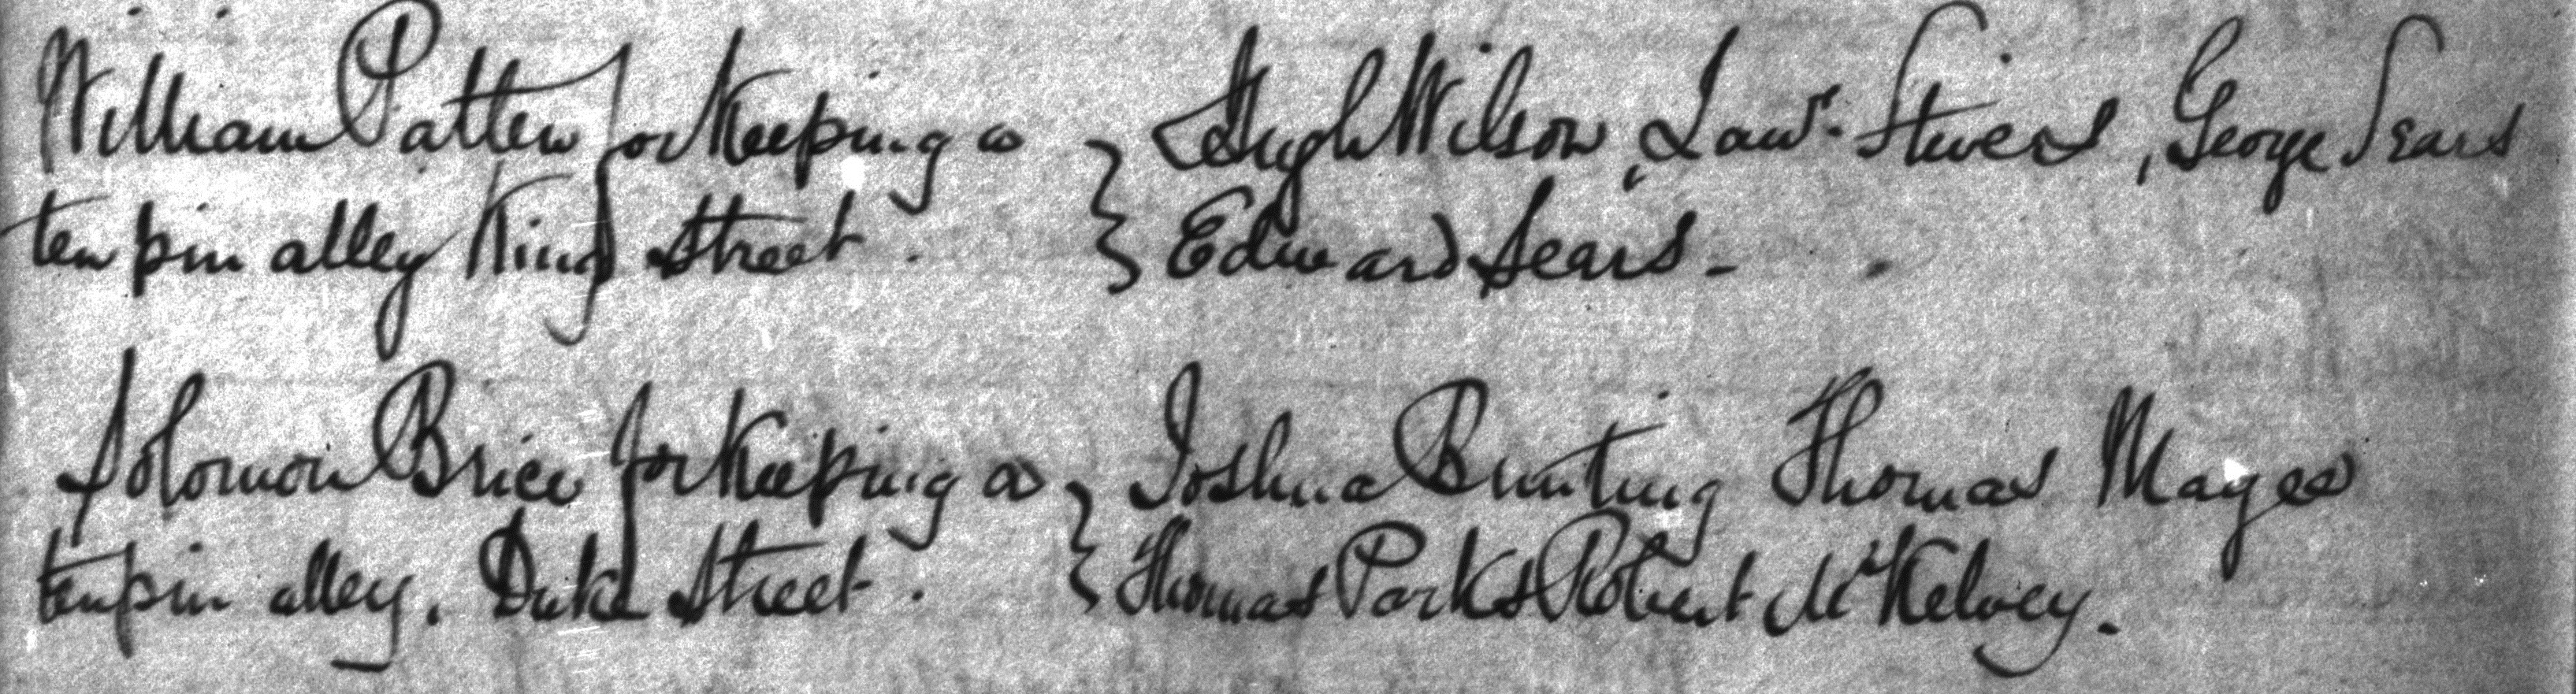 William Patten for Keeping a } Hugh Wilson, Lawr. Stivers, George Sears
ten pin alley King Street. } Edward Sears -
Solomon Brice for Keeping a } Joshua Bunting Thomas Magee
tenpin alley. Duke Street. } Thomas Parks Robert McKelvey.